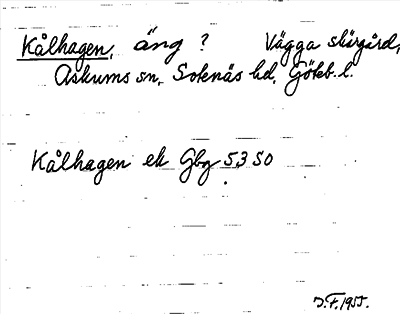 Kålhagen, äng ? Vägga skärgård,
Askums sn, Sotenäs hd, Göteb. l.
Kålhagen ek Gbg 5350
J.F. 1955.